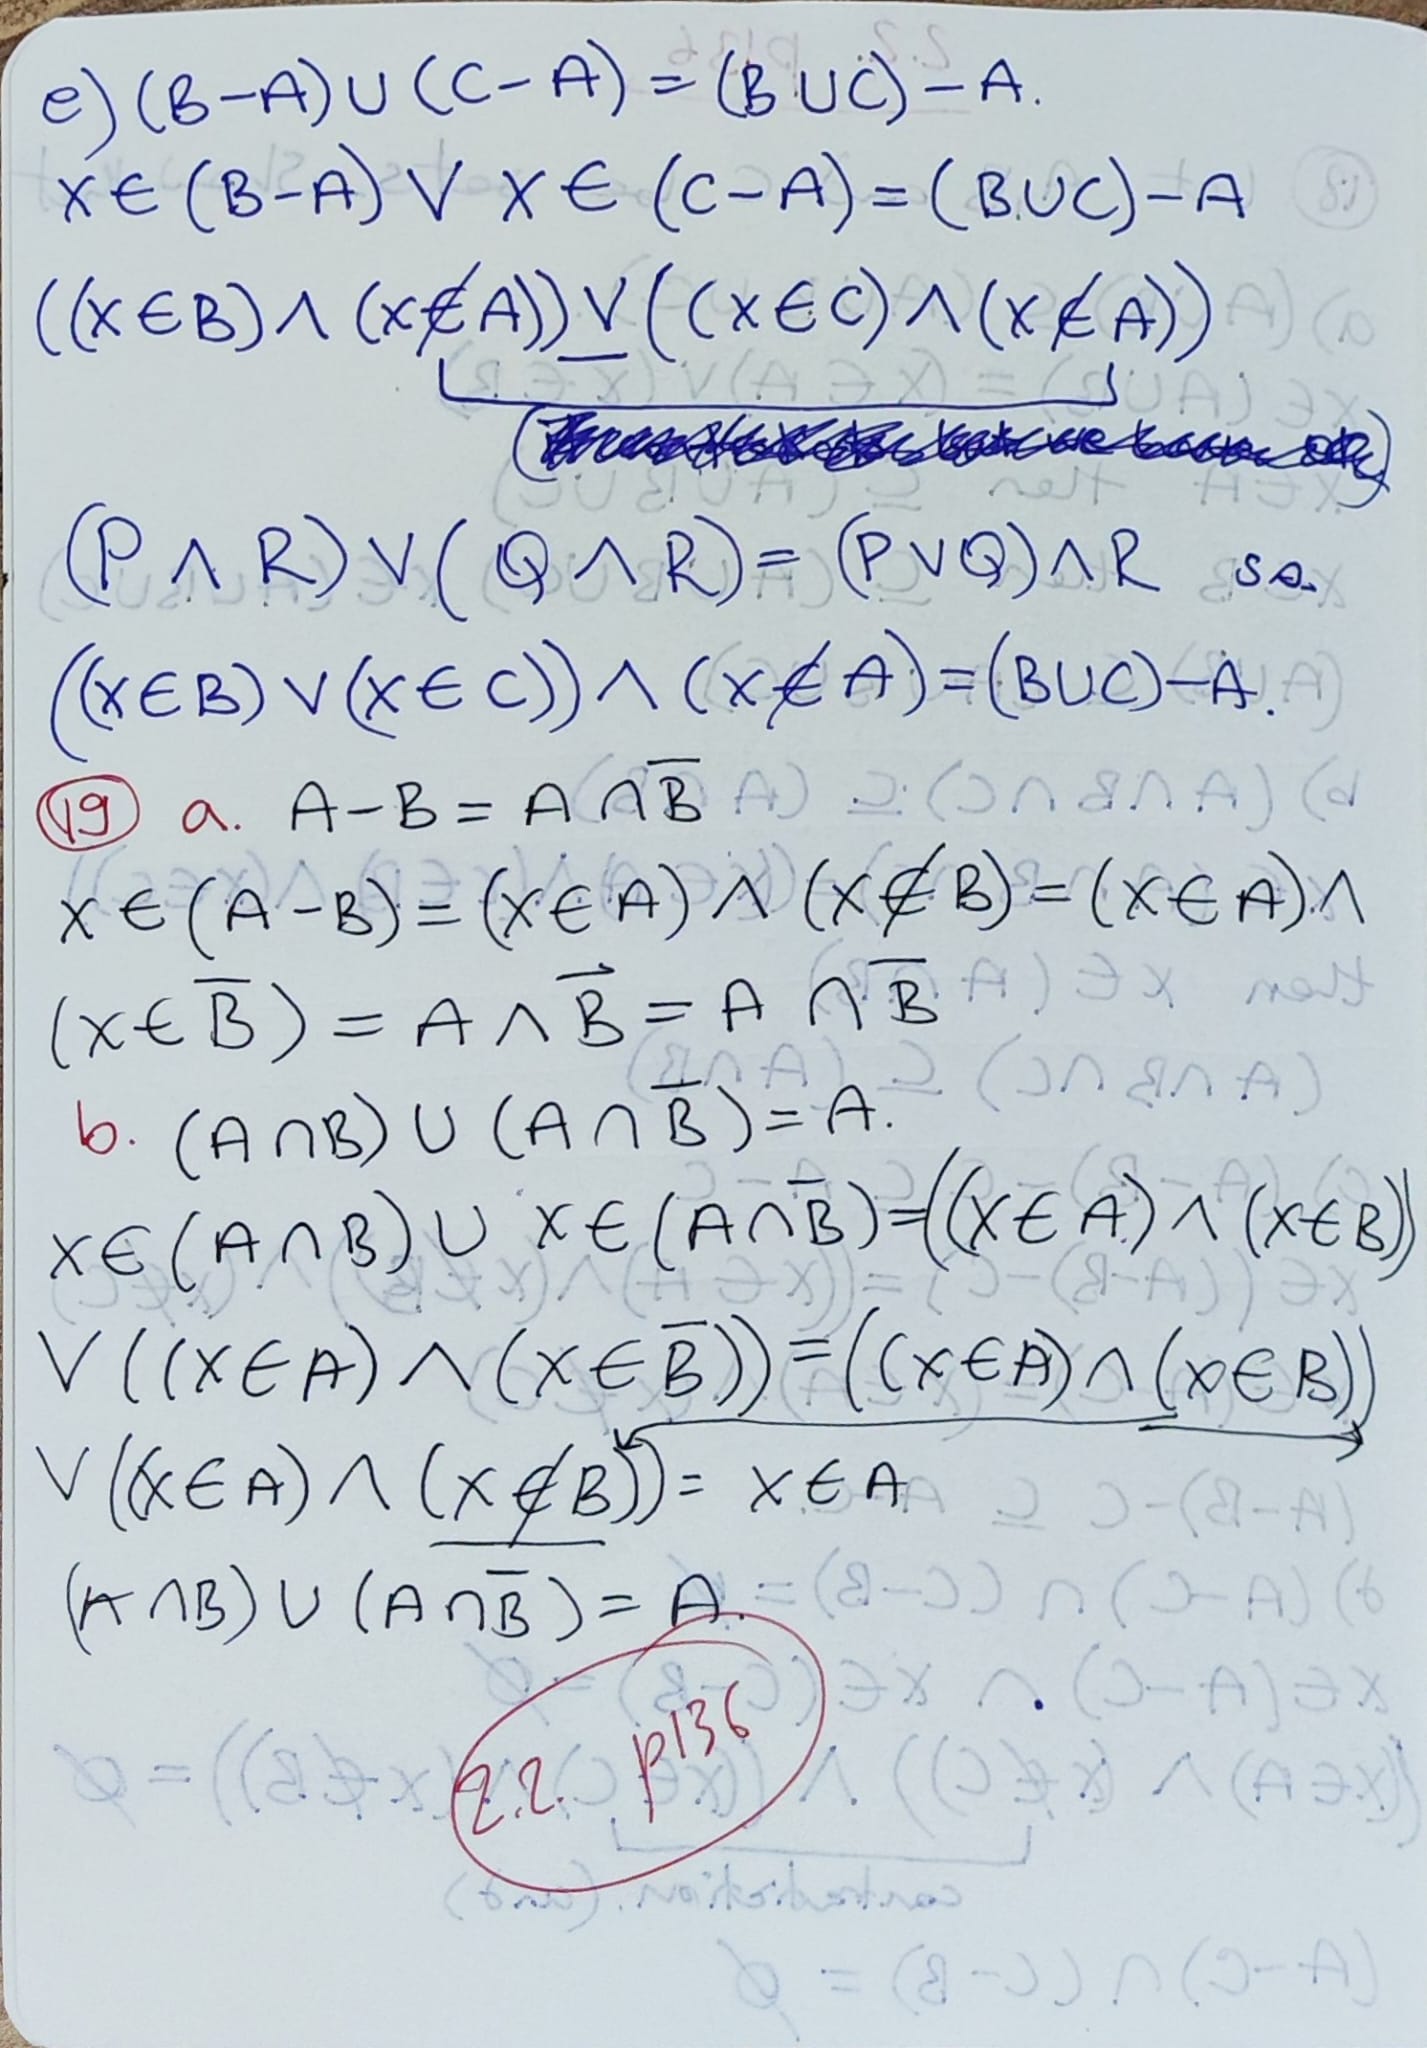 e) (B-A)∪(C-A) = (B∪C)-A.
x∈(B-A) ∨ x∈(C-A)=(B∪C)-A
((x∈B)∧(x∉A))∨((x∈C)∧(x∉A))
(P∧R)∨(Q∧R)=(P∨Q)∧R so.
((x∈B)∨(x∈C))∧(x∉A)=(B∪C)-A.
19 a. A-B = A∩B̅
x∈(A-B)=(x∈A)∧(x∉B)=(x∈A)∧
(x∈B̅) = A∧B̅ = A∩B̅
b. (A∩B)∪(A∩B̅)=A.
x∈(A∩B)∪ x∈(A∩B̅)=((x∈A)∧(x∈B))
∨((x∈A)∧(x∈B̅))=((x∈A)∧(x∈B))
∨((x∈A)∧(x∉B))= x∈A
(A∩B)∪(A∩B̅)= A.
2.2. p136